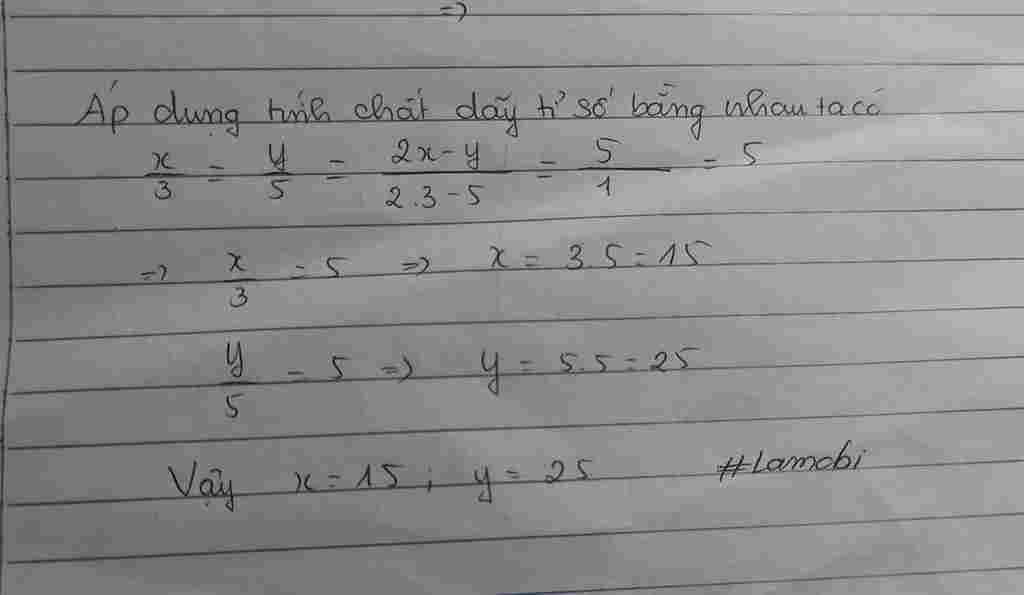 =>
Áp dụng tính chất dãy tỉ số bằng nhau ta có
x/3 = y/5 = 2x-y/2.3-5 = 5/1 = 5
=> x/3 = 5 => x = 3.5 = 15
y/5 = 5 => y = 5.5 = 25
Vậy x = 15 ; y = 25 #Lamobi